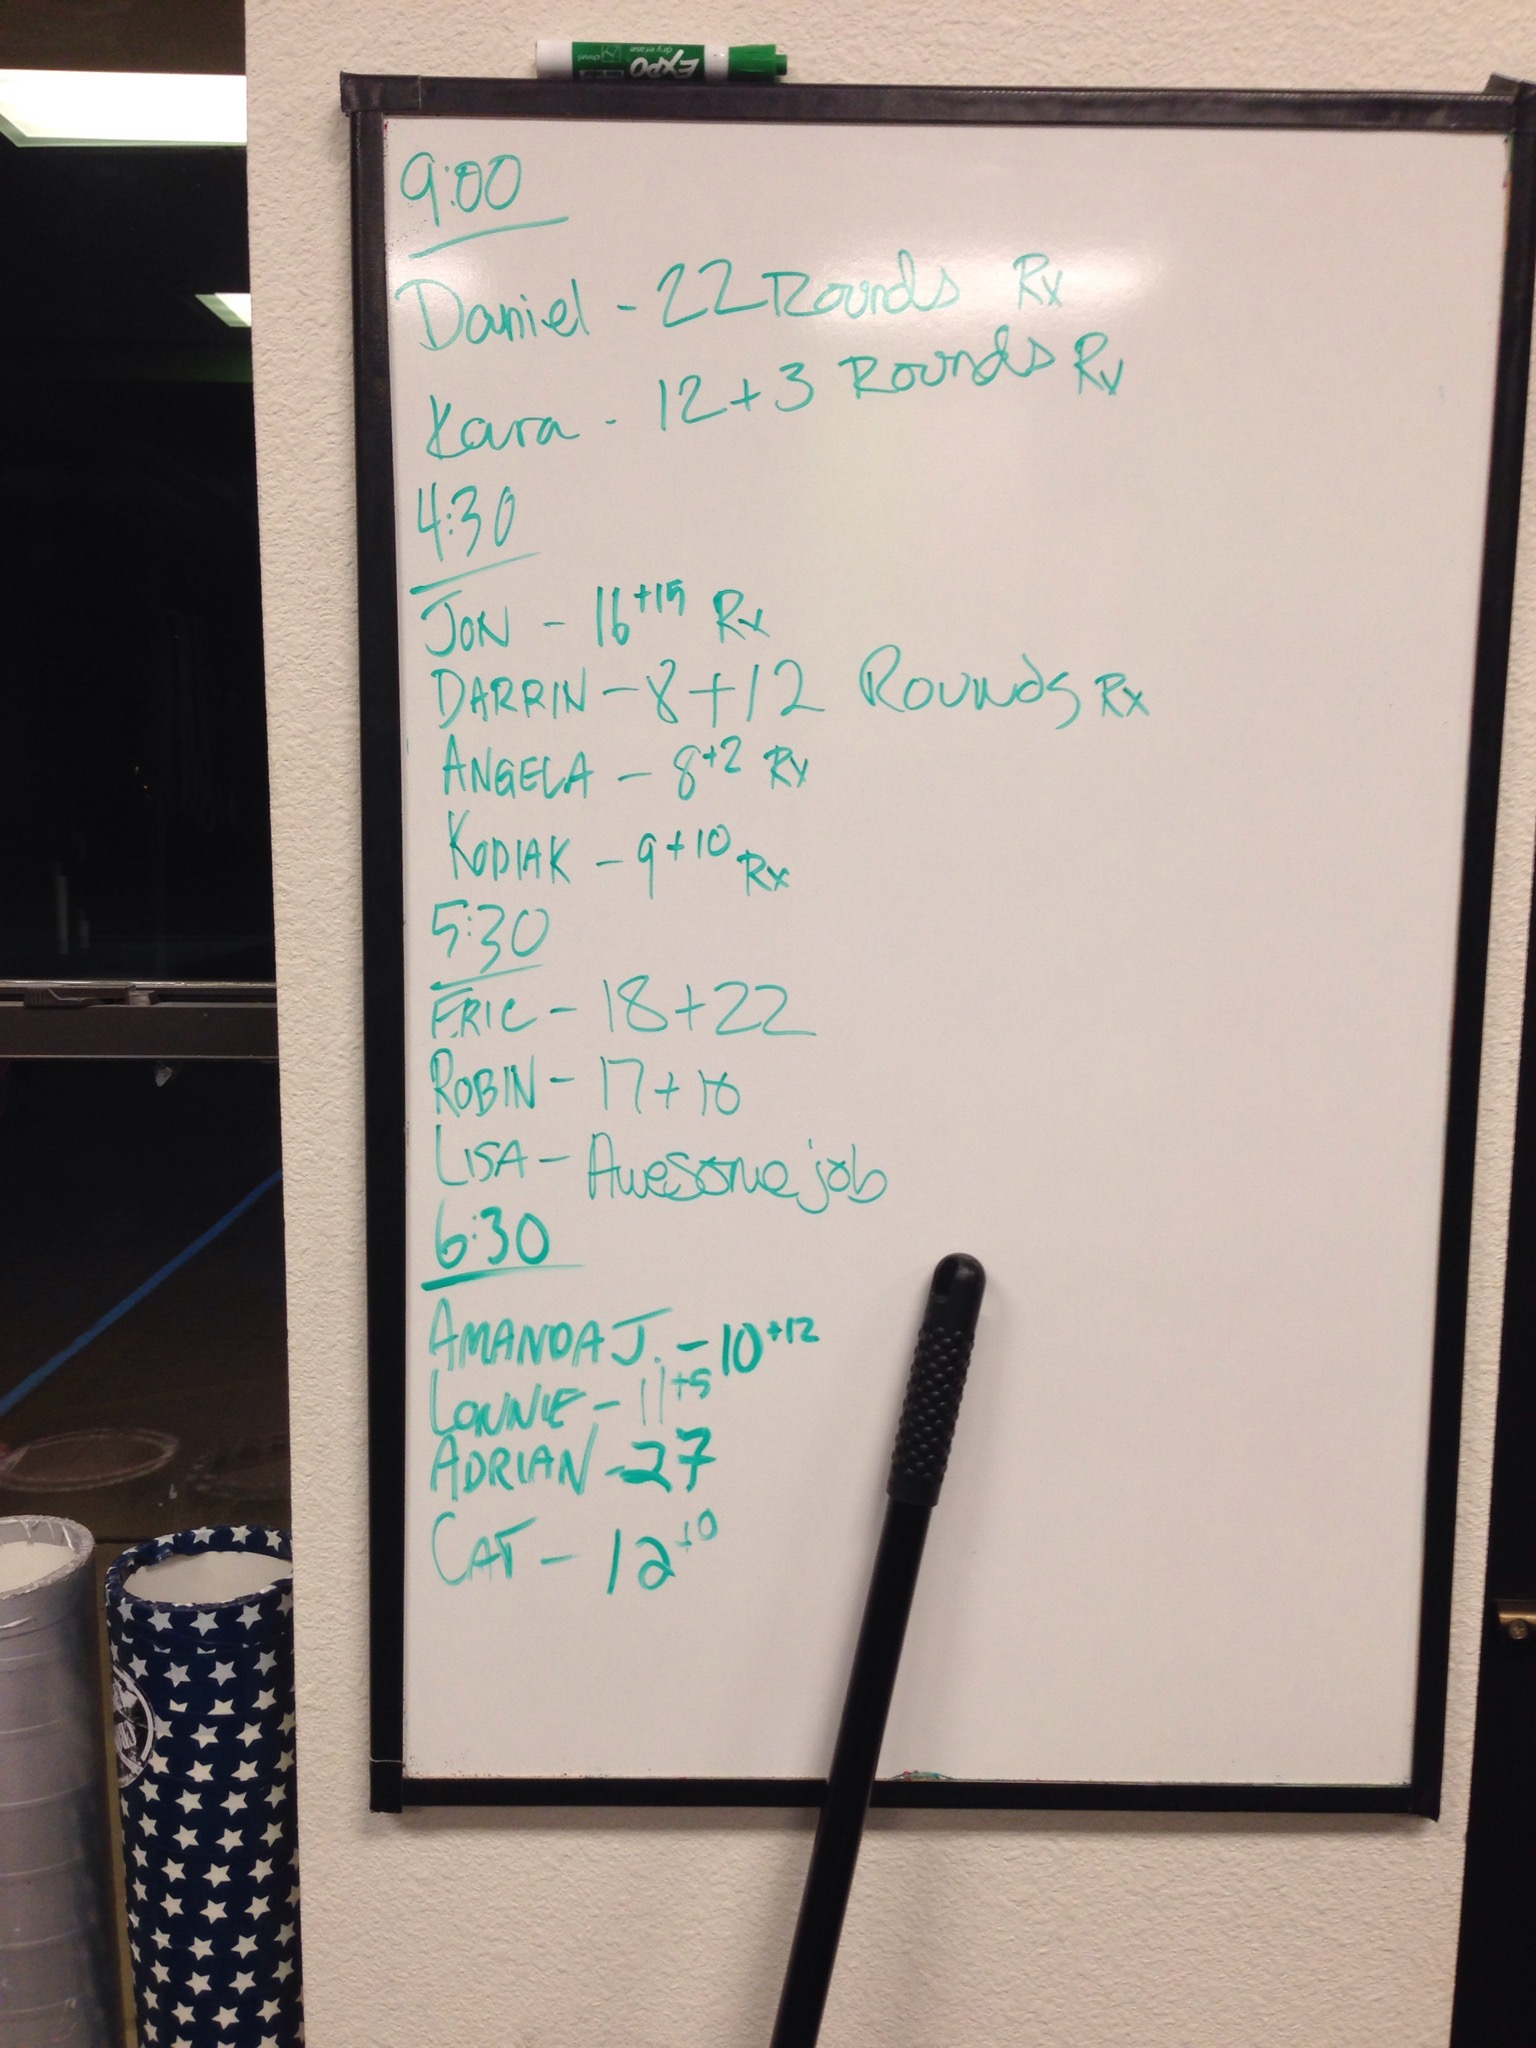 EXPO
dry erase
9:00
Daniel - 22 Rounds Rx
Kara - 12+3 Rounds Rx
4:30
JON - 16+15 Rx
DARRIN - 8+12 Rounds Rx
ANGELA - 8+2 Rx
KODIAK - 9+10 Rx
5:30
ERIC - 18+22
ROBIN - 17+10
LISA - Awesome job
6:30
AMANDA J. - 10+12
LONNIE - 11+5
ADRIAN - 27
CAT - 12+0